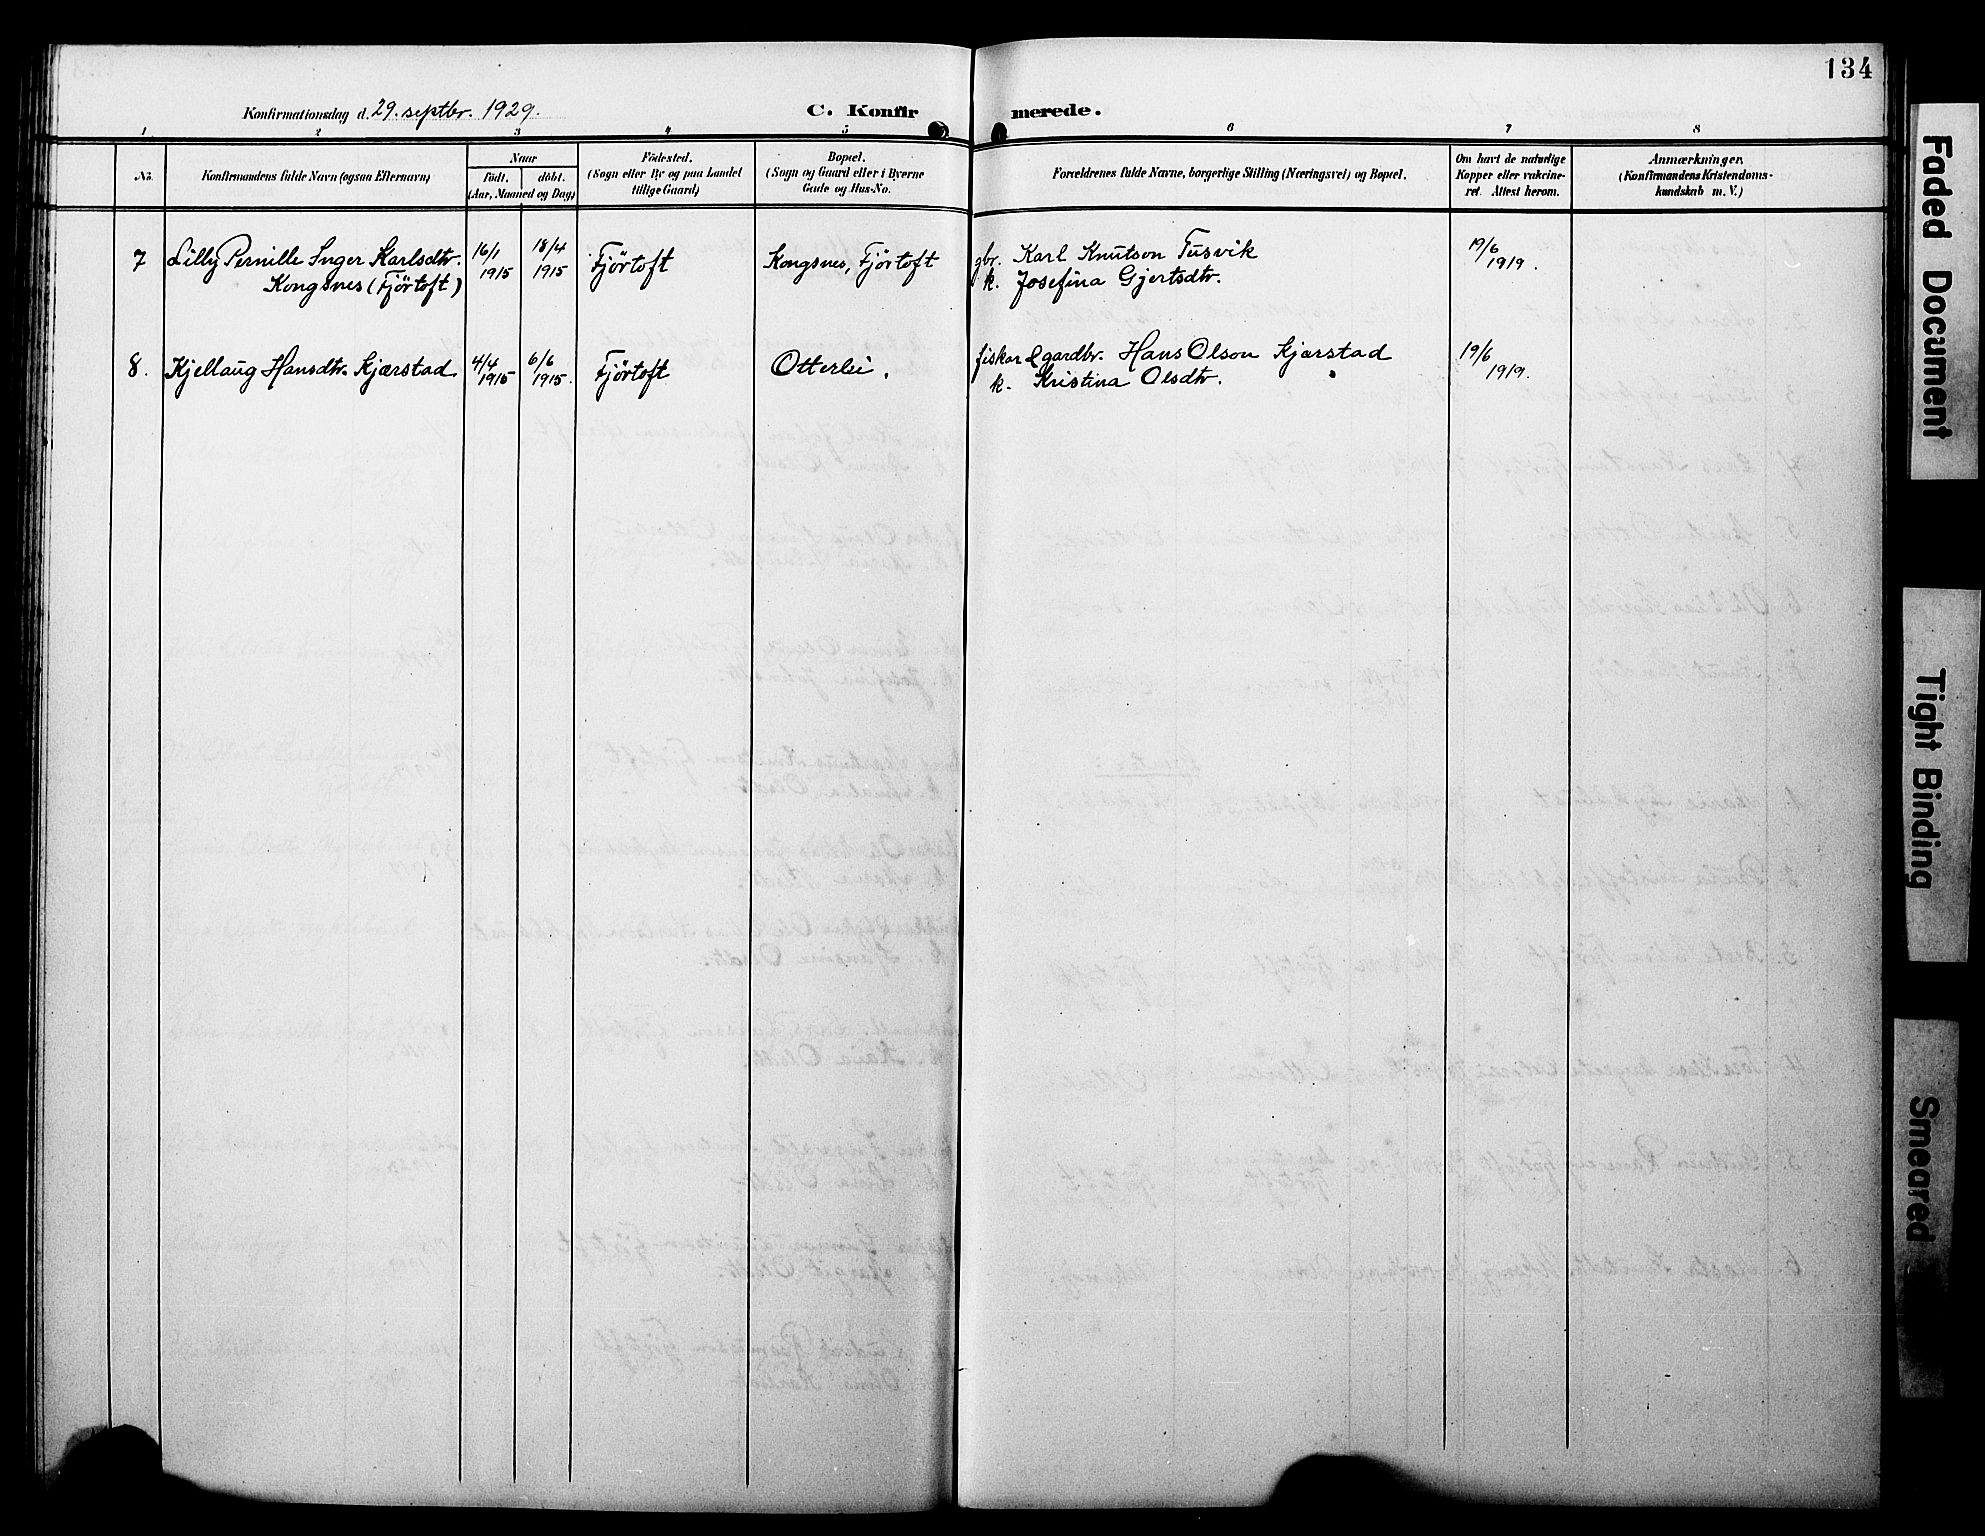 134
Konfirmationsdag d. 29. septbr. 1929.
C. Konfirmerede.
1 2 3 4 5 6 7 8
No.
Konfirmandens fulde Navn (ogsaa Efternavn)
Naar
födt. döbt.
(Aar, Maaned og Dag)
Födested.
(Sogn eller By og paa Landet
tillige Gaard)
Bopæl.
(Sogn og Gaard eller i Byerne
Gade og Hus-No.
Forældrenes fulde Navne, borgerlige Stilling (Næringsvei) og Bopæl.
Om havt de naturlige
Kopper eller vakcine-
ret. Attest herom.
Anmærkninger.
(Konfirmandens Kristendoms-
kundskab m. V.)
7 Lilly Pernille Inger Karlsdtr. 16/1 18/4 Fjörtoft Kongsnes, Fjörtoft gbr. Karl Knutson Tusvik 19/6
Kongsnes (Fjörtoft) 1915 1915 k. Josefina Gjertsdtr. 1919.
8. Kjellaug Hansdtr. Kjærstad 4/4 6/6 Fjörtoft Otterlei. fiskar & gardbr. Hans Olson Kjærstad 19/6
1915 1915. k. Kristina Olsdtr. 1919.
Faded Document
Tight Binding
Smeared